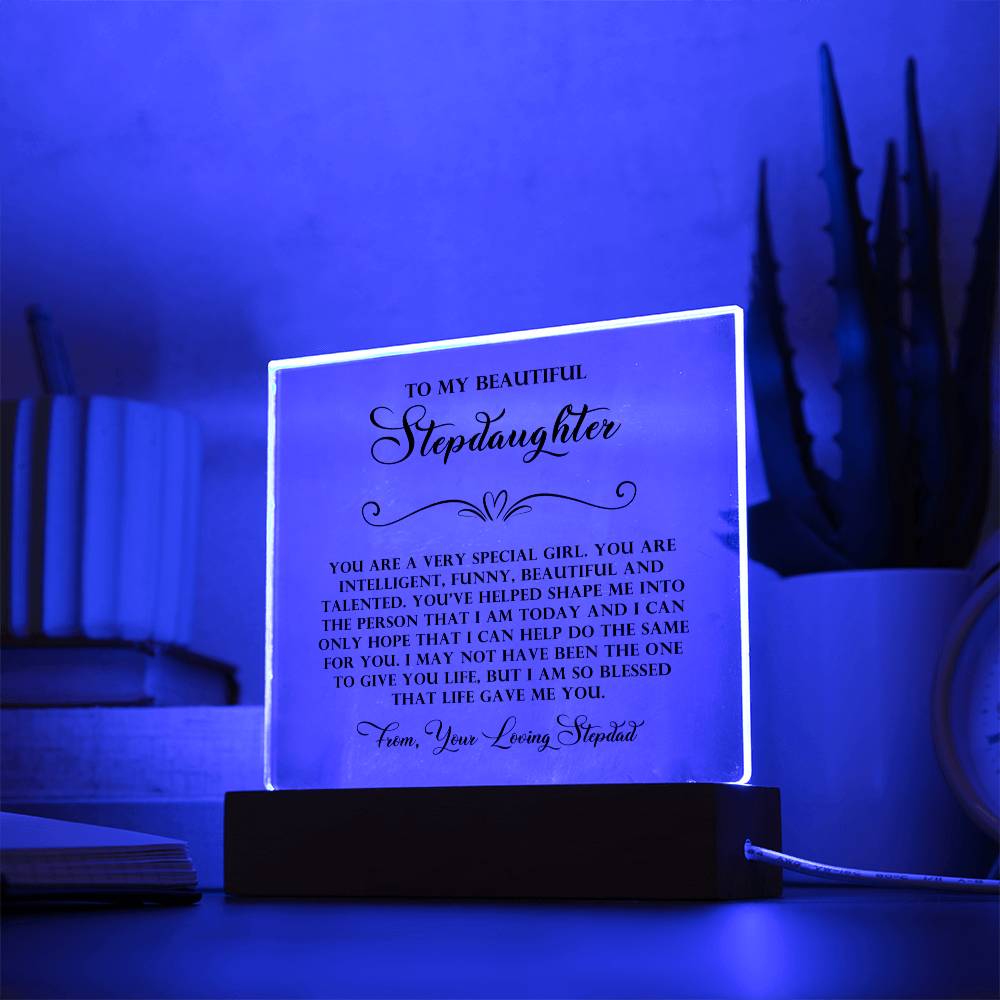 TO MY BEAUTIFUL
Stepdaughter
YOU ARE A VERY SPECIAL GIRL. YOU ARE
INTELLIGENT, FUNNY, BEAUTIFUL AND
TALENTED. YOU'VE HELPED SHAPE ME INTO
THE PERSON THAT I AM TODAY AND I CAN
ONLY HOPE THAT I CAN HELP DO THE SAME
FOR YOU. I MAY NOT HAVE BEEN THE ONE
TO GIVE YOU LIFE, BUT I AM SO BLESSED
THAT LIFE GAVE ME YOU.
From, Your Loving Stepdad